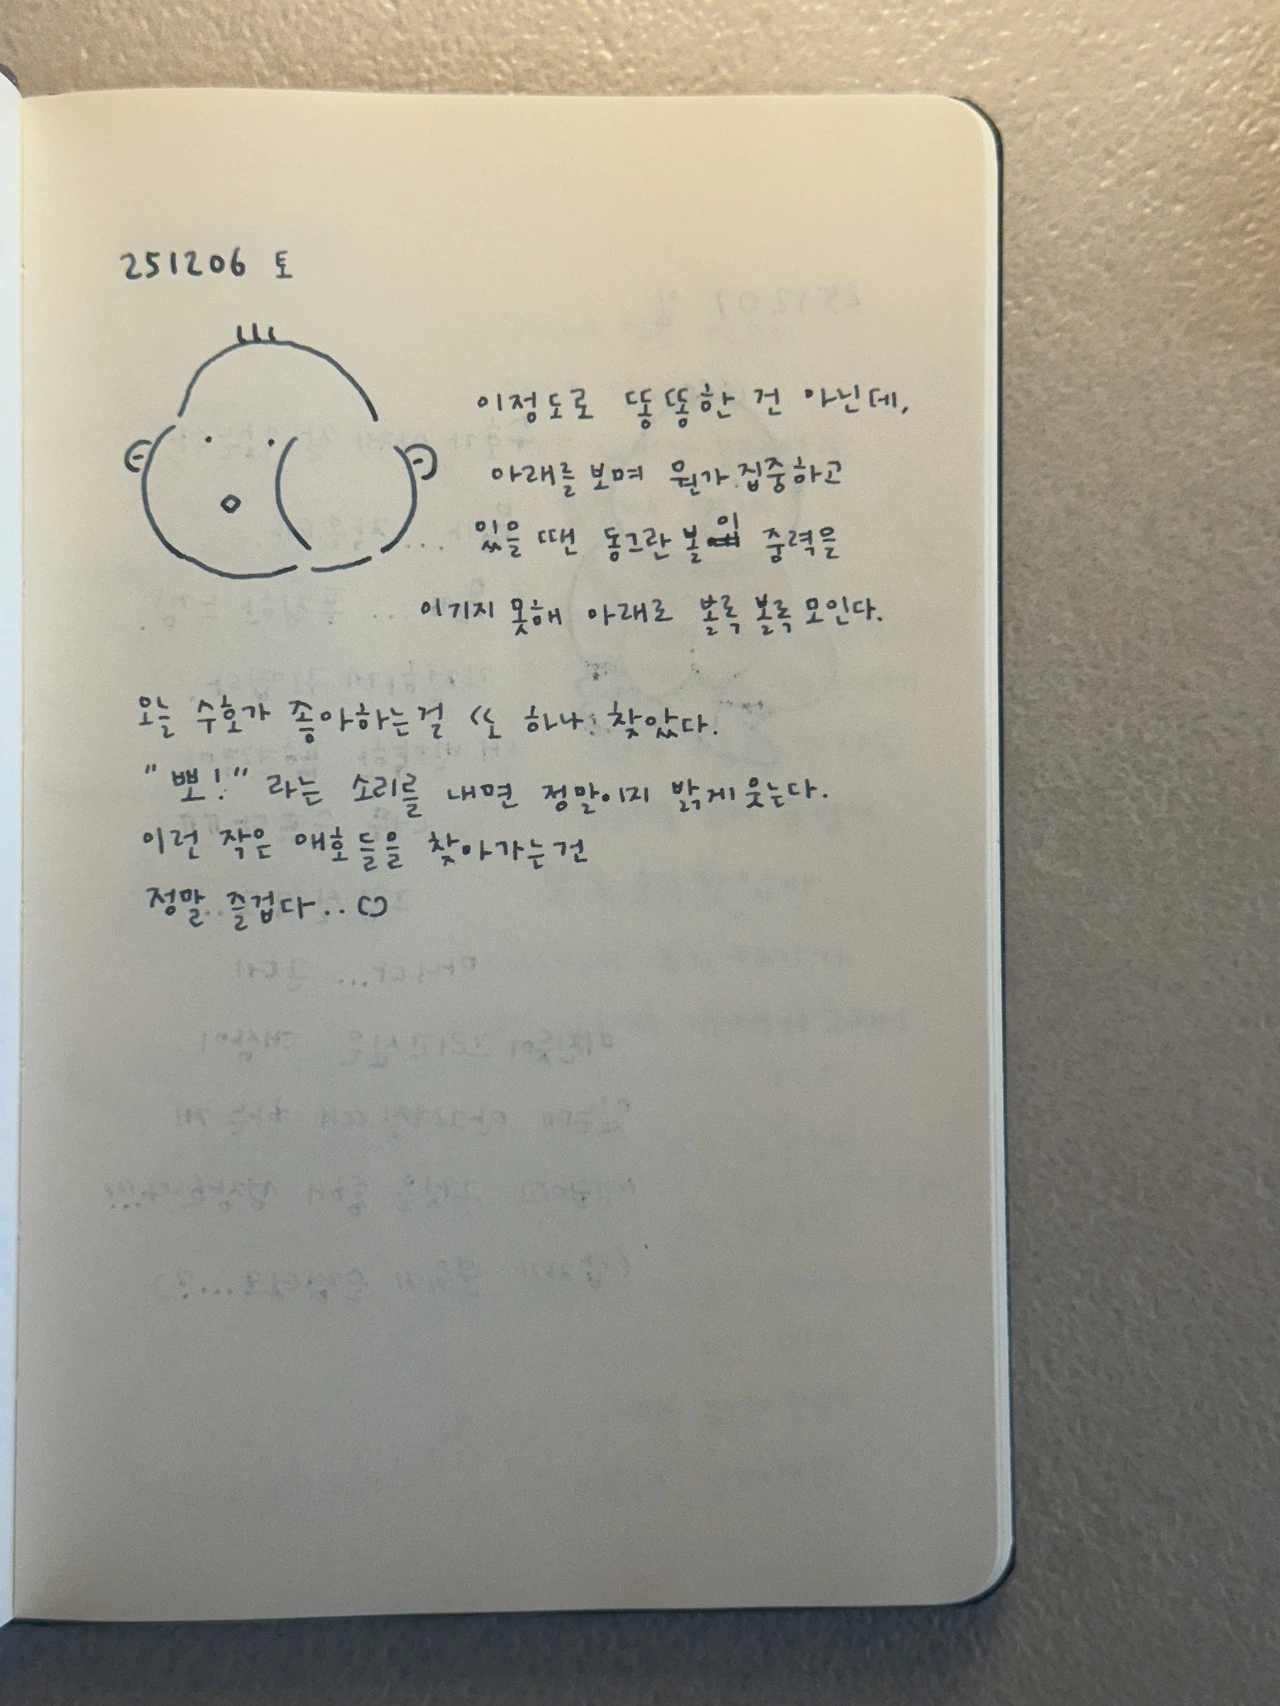 251206 토
이정도로 똥똥한 건 아닌데,
아래를 보며 뭔가 집중하고
있을 땐 동그란 볼이 중력을
이기지 못해 아래로 볼록 볼록 모인다.
오늘 수호가 좋아하는걸 또 하나 찾았다.
"뽀!" 라는 소리를 내면 정말이지 밝게 웃는다.
이런 작은 애호들을 찾아가는건
정말 즐겁다..♡